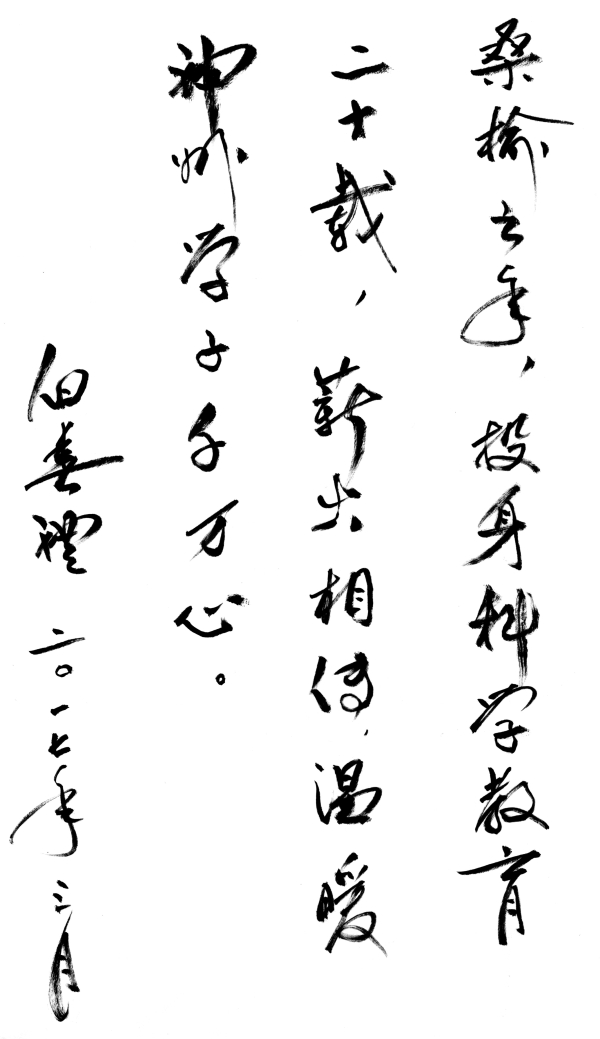 桑榆之年，投身科学教育
二十载，薪火相传，温暖
神州学子千万心。
白春禮 二〇一七年三月